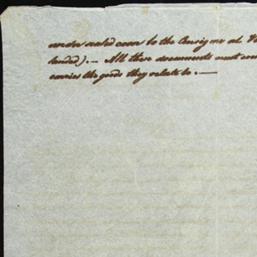 under sealed cover to the Consignee at
landed). — All these documents must
carries the goods they relate to. —